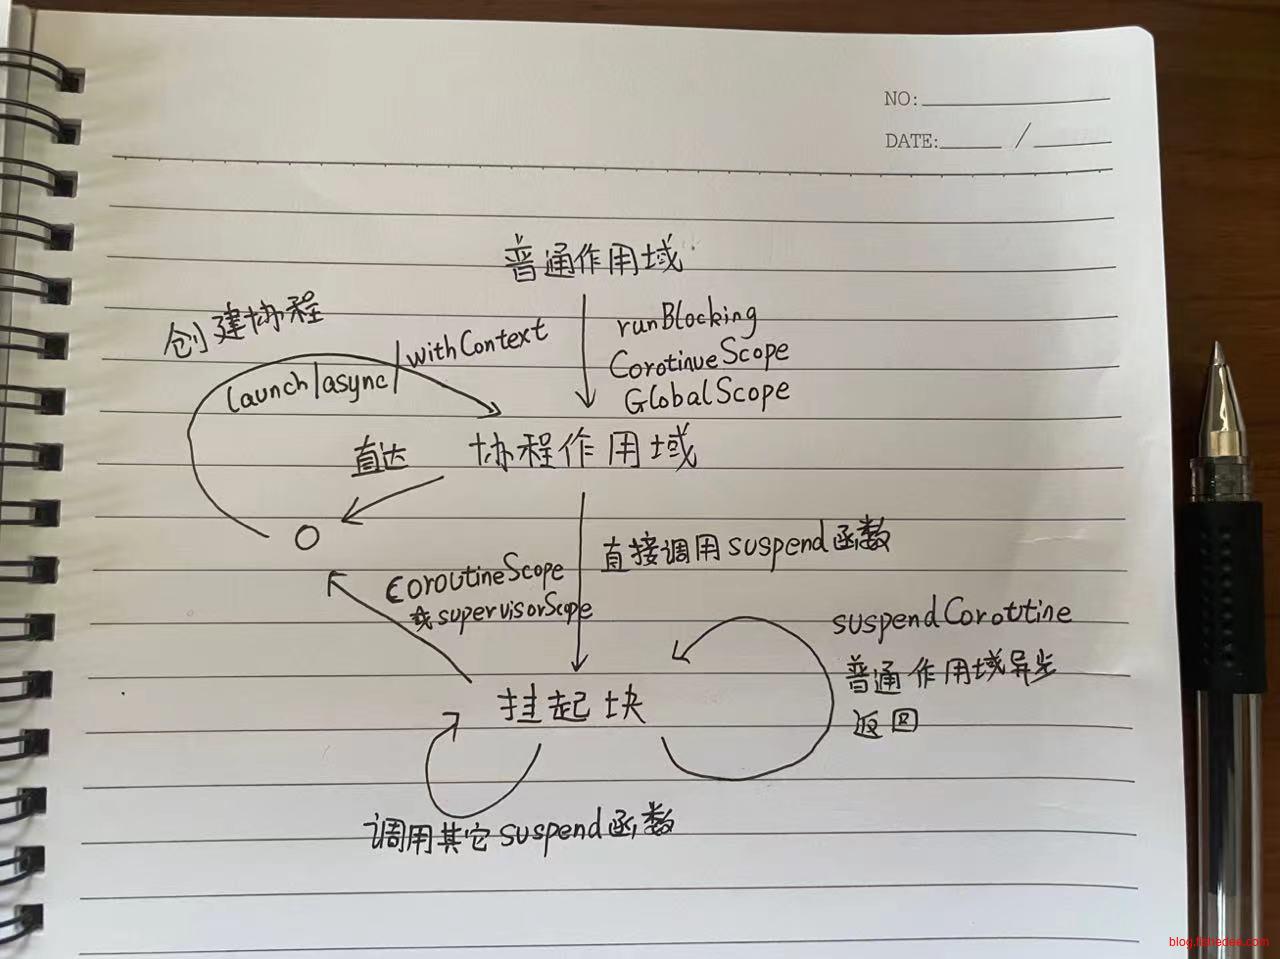 NO:
DATE: /
普通作用域
创建协程
runBlocking
withContext
CorotinueScope
launch|async|
GlobalScope
直达
协程作用域
直接调用suspend函数
coroutineScope
或supervisorScope
suspendCorottine
普通作用域异步
返回
挂起块
调用其它suspend函数
blog.fishedee.com